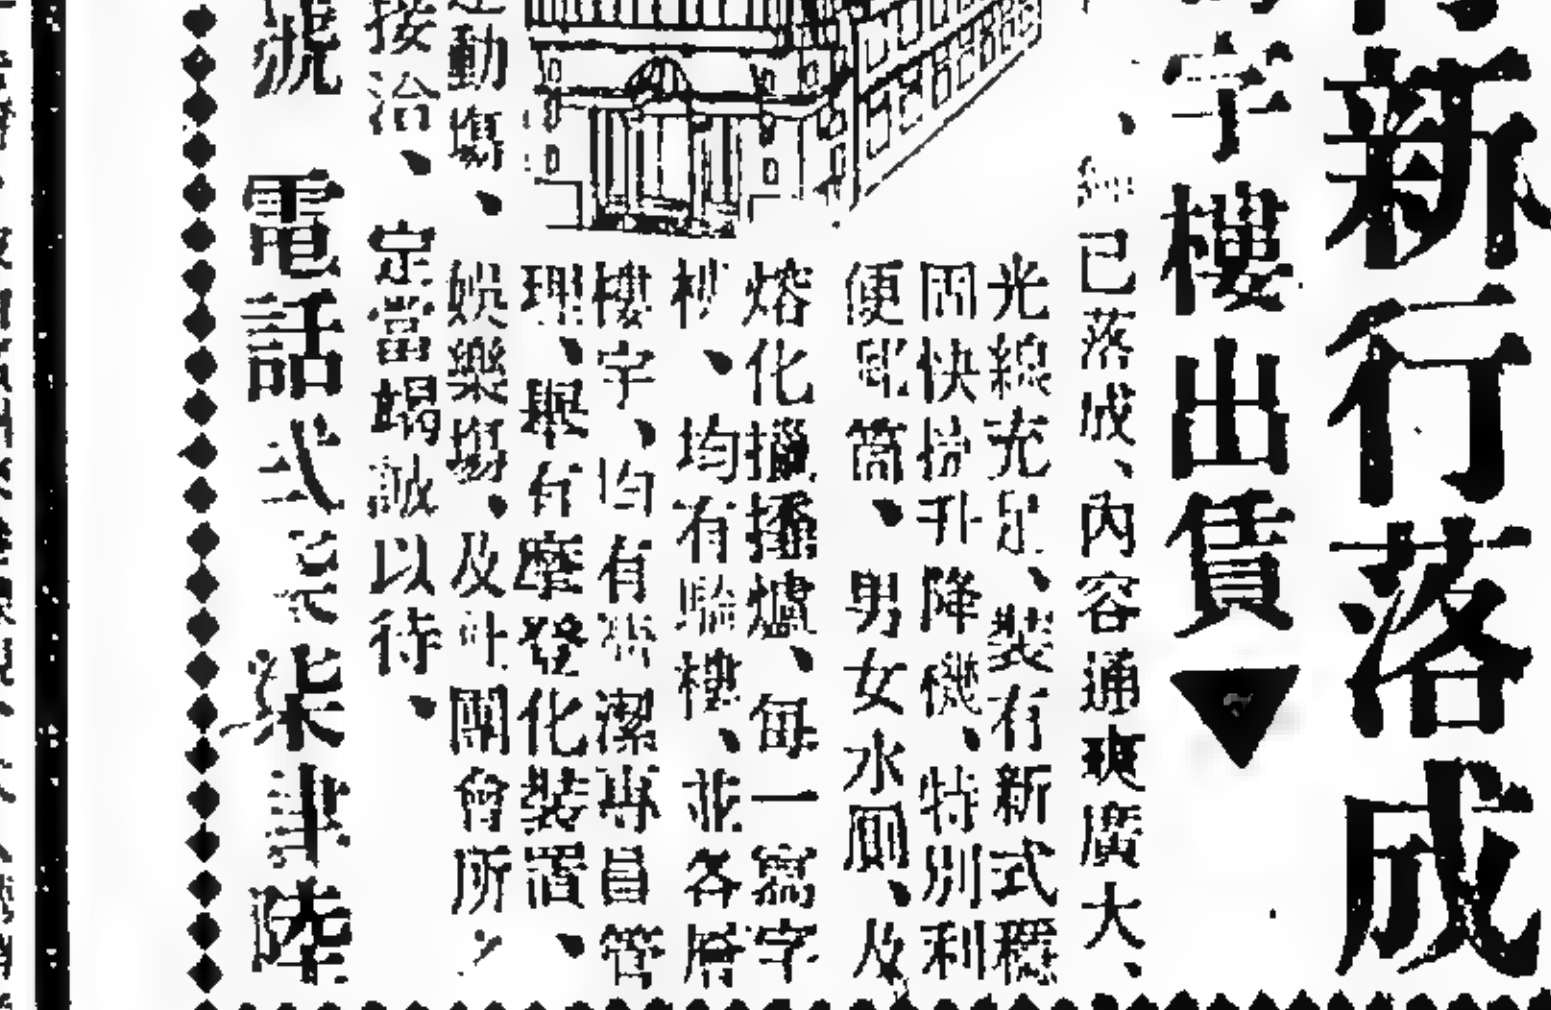 新行落成
字樓出賃▼
、經已落成、內容通爽廣大、
光線充足、裝有新式穩
固快捷升降機、特別利
便郵筒、男女水厠、及
熔化擸爐、每一寫字
樓、均有騎樓、並各層
樓宇、均有清潔專員管
理、與有摩登化裝置、
動塲、娛樂塲、及社團會所、
接洽、定當竭誠以待、
號 電話弍柒肆陸